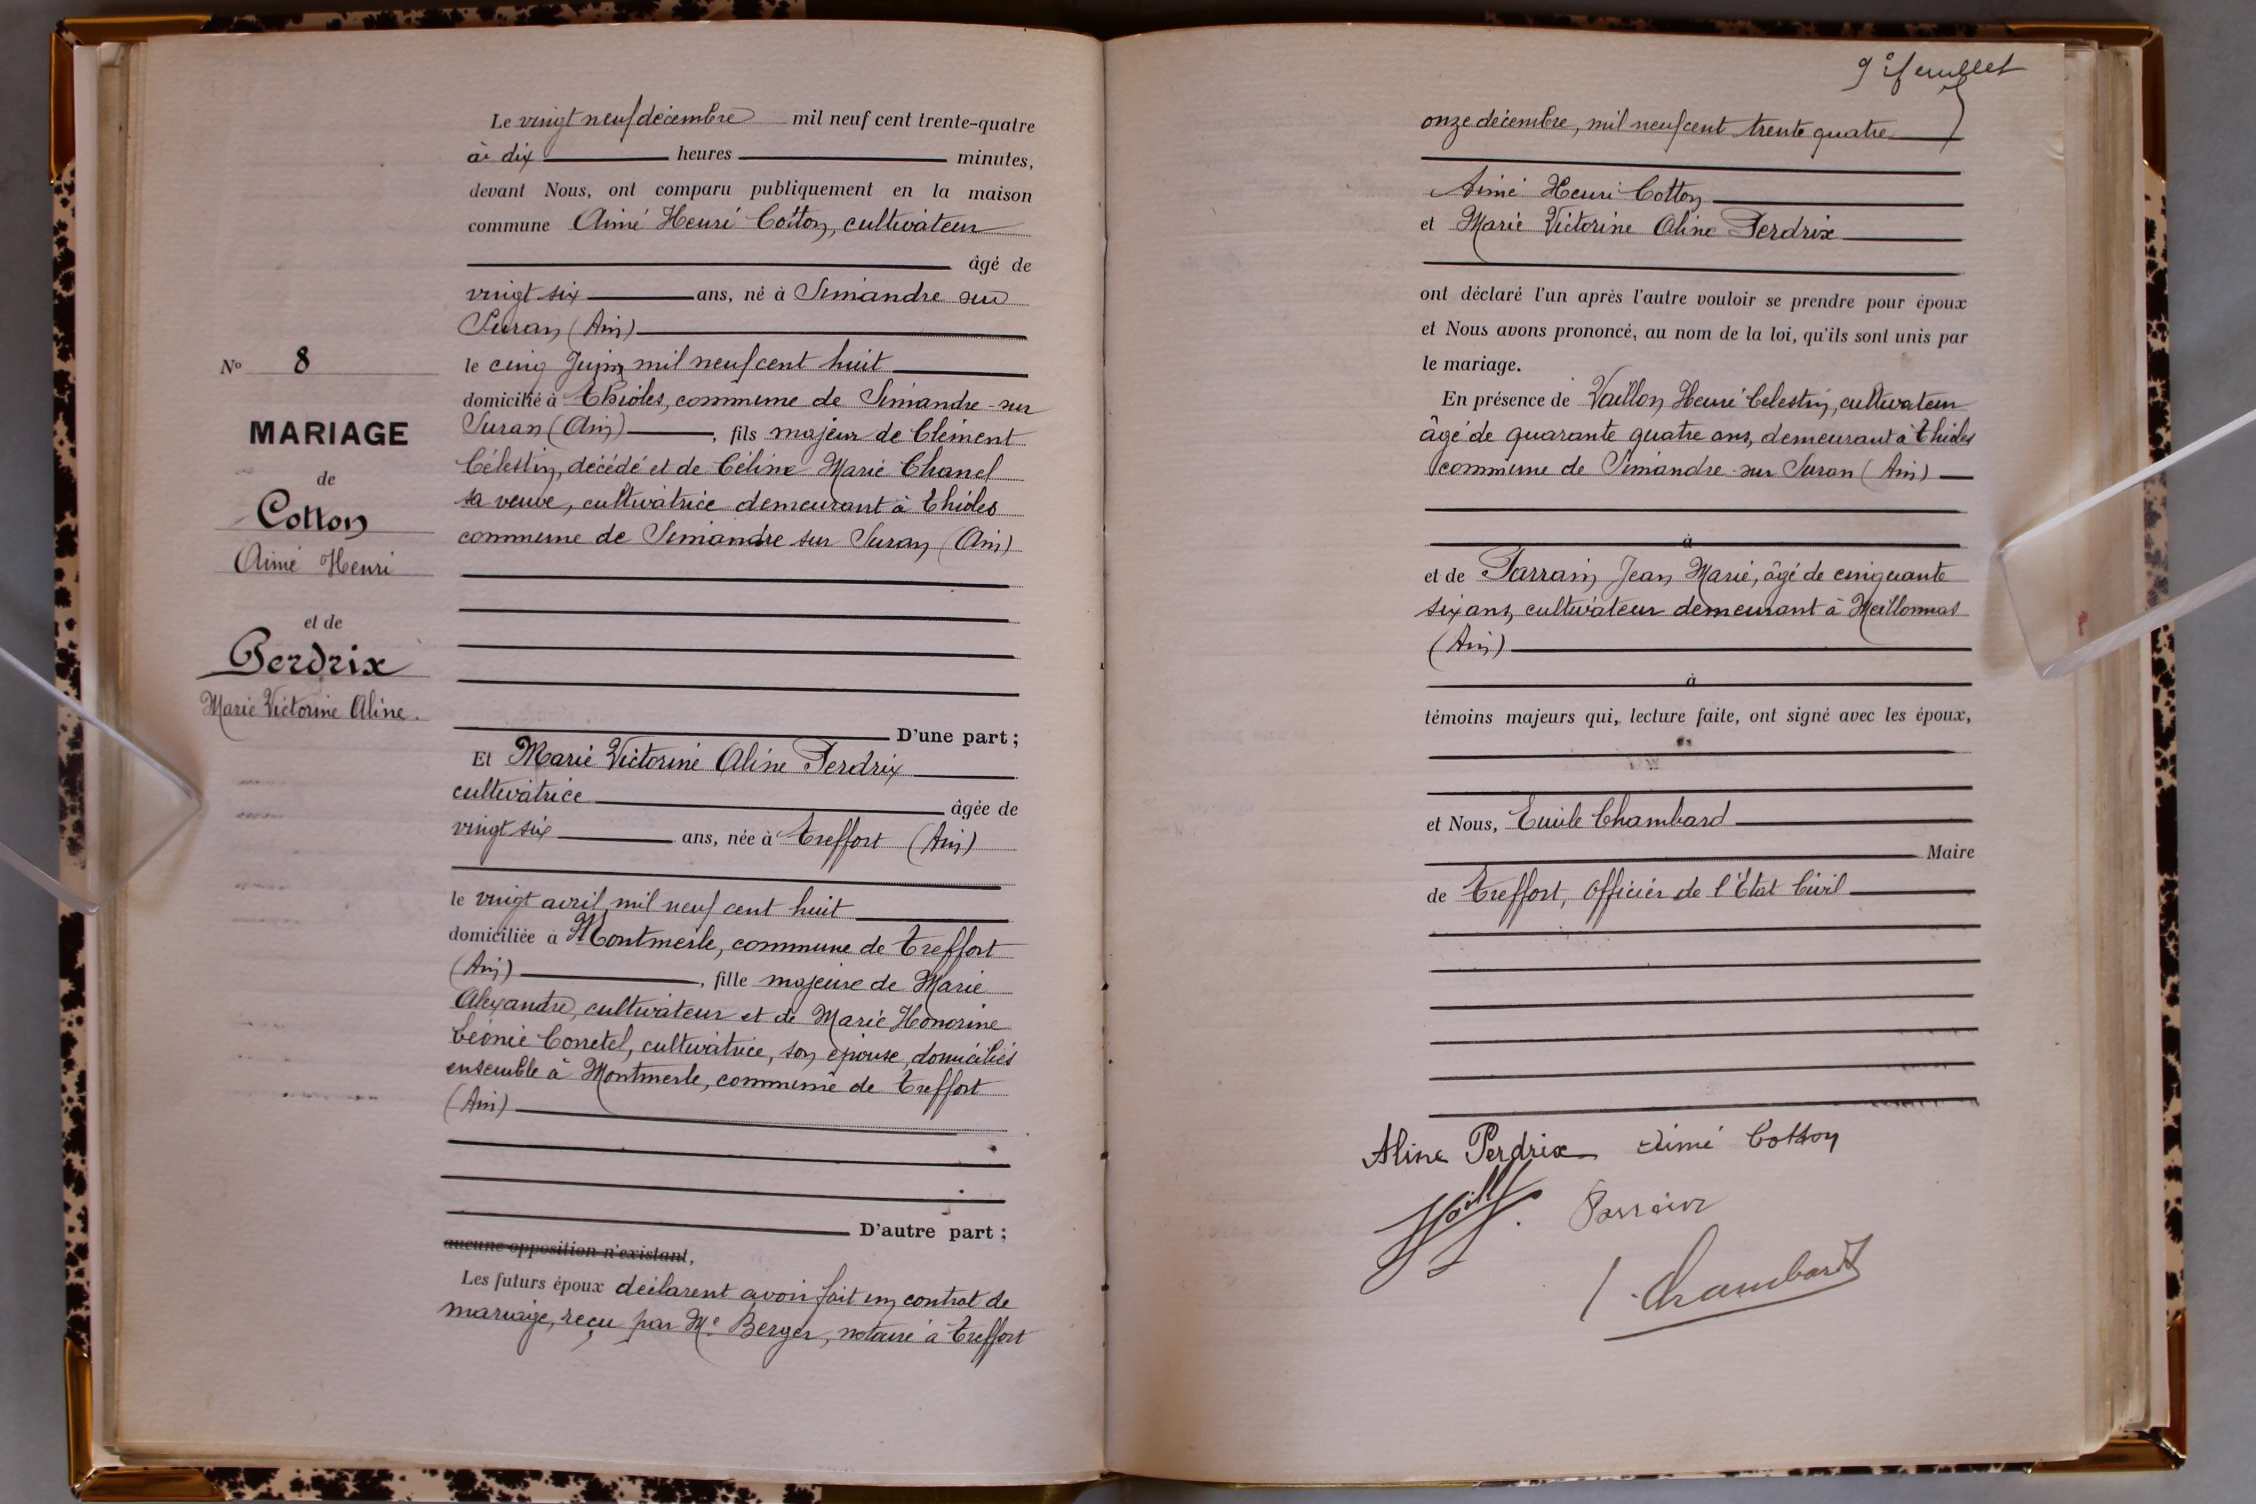 Le vingt neuf décembre mil neuf cent trente-quatre
à dix heures minutes,
devant Nous, ont comparu publiquement en la maison
commune Aimé Henri Cotton, cultivateur
âgé de
vingt six ans, né à Simandre sur
Suran (Ain)
le cinq Juin mil neuf cent huit
domicilié à Thioles, commune de Simandre-sur
Suran (Ain), fils majeur de Clément
Célestin, décédé et de Céline Marie Chanel
sa veuve, cultivatrice demeurant à Thioles
commune de Simandre sur Suran (Ain)
No 8
MARIAGE
de
Cotton
Aimé Henri
et de
Perdrix
Marie Victorine Aline.
D'une part;
Et Marie Victorine Aline Perdrix
cultivatrice âgée de
vingt six ans, née à Treffort (Ain)
le vingt avril mil neuf cent huit
domiciliée à Montmerle, commune de Treffort
(Ain), fille majeure de Marie
Alexandre, cultivateur et de Marie Honorine
Léonie Corretel, cultivatrice, son épouse, domiciliés
ensemble à Montmerle, commune de Treffort
(Ain)
D'autre part;
aucune opposition n'existant,
Les futurs époux déclarent avoir fait un contrat de
mariage, reçu par Me Berger, notaire à Treffort
9e feuillet
onze décembre, mil neuf cent trente quatre
Aimé Henri Cotton
et Marie Victorine Aline Perdrix
ont déclaré l'un après l'autre vouloir se prendre pour époux
et Nous avons prononcé, au nom de la loi, qu'ils sont unis par
le mariage.
En présence de Vaillon Henri Célestin, cultivateur
âgé de quarante quatre ans, demeurant à Thioles
commune de Simandre-sur Suran (Ain)
à
et de Parrain Jean Marie, âgé de cinquante
six ans, cultivateur demeurant à Meillonnas
(Ain)
à
témoins majeurs qui, lecture faite, ont signé avec les époux,
et Nous, Emile Chambard
Maire
de Treffort, Officier de l'Etat Civil
Aline Perdrix Aimé Cotton
Parrain
Chambard